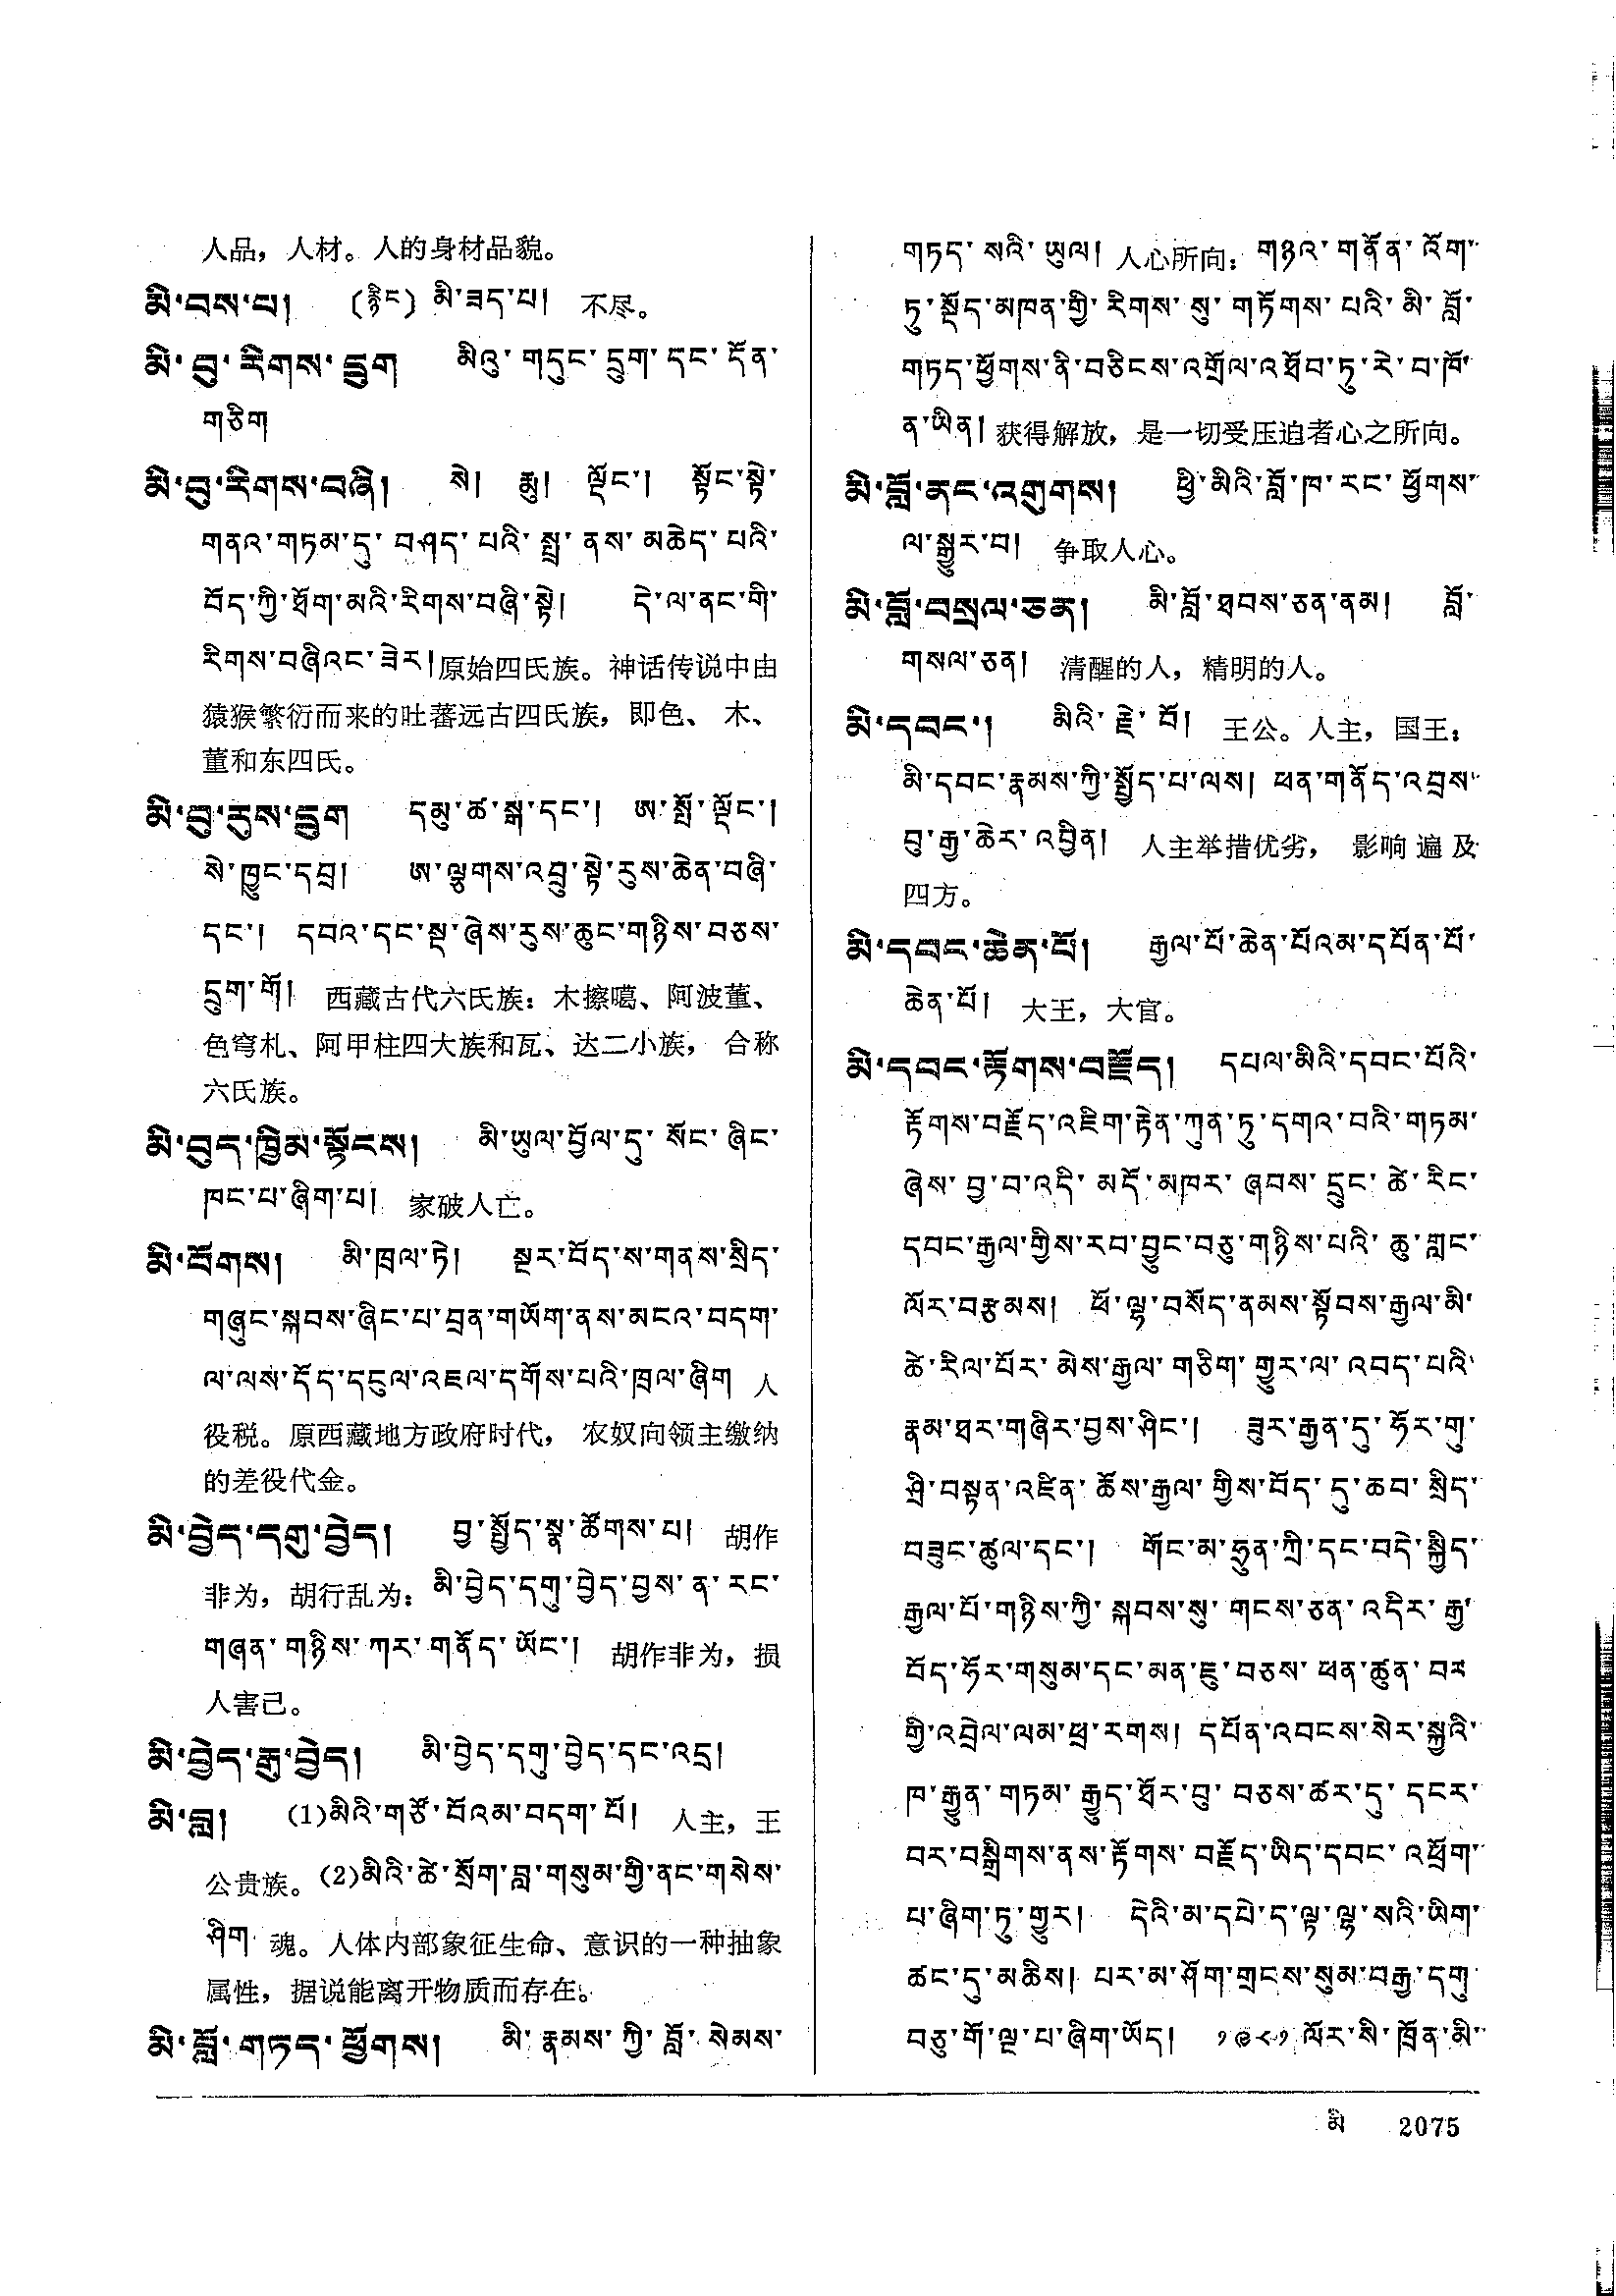 人品，人材。人的身材品貌。
མི་བས་པ། (རྙིང) མི་ཟད་པ། 不尽。
མི་བུ་རིགས་དྲུག མིའུ་གདུང་དྲུག་དང་དོན་
གཅིག
མི་བུ་རིགས་བཞི། སེ། རྨུ། ལྡོང་། སྟོང་སྟེ་
གནའ་གཏམ་དུ་བཤད་པའི་སྤྲ་ནས་མཆེད་པའི་
བོད་ཀྱི་ཐོག་མའི་རིགས་བཞི་སྟེ། དེ་ལ་ནང་གི་
རིགས་བཞིའང་ཟེར།原始四氏族。神话传说中由
猿猴繁衍而来的吐蕃远古四氏族，即色、木、
董和东四氏。
མི་བུ་རུས་དྲུག དམུ་ཚ་སྒ་དང་། ཨ་སྤོ་ལྡོང་།
སེ་ཁྱུང་དབྲ། ཨ་ལྕགས་འབྲུ་སྟེ་རུས་ཆེན་བཞི་
དང་། དབའ་དང་སྡ་ཞེས་རུས་ཆུང་གཉིས་བཅས་
དྲུག་གོ། 西藏古代六氏族：木擦噶、阿波董、
色穹札、阿甲柱四大族和瓦、达二小族，合称
六氏族。
མི་བུད་ཁྱིམ་སྟོངས། མི་ཡུལ་བྱོལ་དུ་སོང་ཞིང་
ཁང་པ་ཞིག་པ། 家破人亡。
མི་བོགས། མི་ཁྲལ་ཏེ། སྔར་བོད་ས་གནས་སྲིད་
གཞུང་སྐབས་ཞིང་པ་བྲན་གཡོག་ནས་མངའ་བདག་
ལ་ལས་དོད་དངུལ་འཇལ་དགོས་པའི་ཁྲལ་ཞིག 人
役税。原西藏地方政府时代，农奴向领主缴纳
的差役代金。
མི་བྱེད་དགུ་བྱེད། བྱ་སྤྱོད་སྣ་ཚོགས་པ། 胡作
非为，胡行乱为：མི་བྱེད་དགུ་བྱེད་བྱས་ན་རང་
གཞན་གཉིས་ཀར་གནོད་ཡོང་། 胡作非为，损
人害己。
མི་བྱེད་རྒུ་བྱེད། མི་བྱེད་དགུ་བྱེད་དང་འདྲ།
མི་བླ། (1)མིའི་གཙོ་བོའམ་བདག་པོ། 人主，王
公贵族。(2)མིའི་ཚེ་སྲོག་བླ་གསུམ་གྱི་ནང་གསེས་
ཤིག 魂。人体内部象征生命、意识的一种抽象
属性，据说能离开物质而存在。
མི་བློ་གཏད་ཕྱོགས། མི་རྣམས་ཀྱི་བློ་སེམས་
གཏད་སའི་ཡུལ། 人心所向：གཉའ་གནོན་འོག་
ཏུ་སྡོད་མཁན་གྱི་རིགས་སུ་གཏོགས་པའི་མི་བློ་
གཏད་ཕྱོགས་ནི་བཅིངས་འགྲོལ་འཐོབ་ཏུ་རེ་བ་ཁོ་
ན་ཡིན། 获得解放，是一切受压迫者心之所向。
མི་བློ་ནང་འགུགས། ཕྱི་མིའི་བློ་ཁ་རང་ཕྱོགས་
ལ་སྒྱུར་བ། 争取人心。
མི་བློ་བསལ་ཅན། མི་བློ་ཐབས་ཅན་ནམ། བློ་
གསལ་ཅན། 清醒的人，精明的人。
མི་དབང་། མིའི་རྗེ་བོ། 王公。人主，国王：
མི་དབང་རྣམས་ཀྱི་སྤྱོད་པ་ལས། ཕན་གནོད་འབྲས་
བུ་རྒྱ་ཆེར་འབྱིན། 人主举措优劣，影响遍及
四方。
མི་དབང་ཆེན་པོ། རྒྱལ་པོ་ཆེན་པོའམ་དཔོན་པོ་
ཆེན་པོ། 大王，大官。
མི་དབང་རྟོགས་བརྗོད། དཔལ་མིའི་དབང་པོའི་
རྟོགས་བརྗོད་འཇིག་རྟེན་ཀུན་ཏུ་དགའ་བའི་གཏམ་
ཞེས་བྱ་བ་འདི་མདོ་མཁར་ཞབས་དྲུང་ཚེ་རིང་
དབང་རྒྱལ་གྱིས་རབ་བྱུང་བཅུ་གཉིས་པའི་ཆུ་གླང་
ལོར་བརྩམས། ཕོ་ལྷ་བསོད་ནམས་སྟོབས་རྒྱལ་མི་
ཚེ་རིལ་པོར་མེས་རྒྱལ་གཅིག་གྱུར་ལ་འབད་པའི་
རྣམ་ཐར་གཞིར་བྱས་ཤིང་། ཟུར་རྒྱན་དུ་ཧོར་གུ་
ཤྲི་བསྟན་འཛིན་ཆོས་རྒྱལ་གྱིས་བོད་དུ་ཆབ་སྲིད་
བཟུང་ཚུལ་དང་། གོང་མ་ཧྲུན་ཀྲི་དང་བདེ་སྐྱིད་
རྒྱལ་པོ་གཉིས་ཀྱི་སྐབས་སུ་གངས་ཅན་འདིར་རྒྱ་
བོད་ཧོར་གསུམ་དང་མན་ཇུ་བཅས་ཕན་ཚུན་བར
གྱི་འབྲེལ་ལམ་ཕྲ་རགས། དཔོན་འབངས་སེར་སྐྱའི་
ཁ་རྒྱུན་གཏམ་རྒྱུད་ཐོར་བུ་བཅས་ཚར་དུ་དངར་
བར་བསྒྲིགས་ནས་རྟོགས་བརྗོད་ཡིད་དབང་འཕྲོག་
པ་ཞིག་ཏུ་གྱུར། དེའི་མ་དཔེ་ད་ལྟ་ལྷ་སའི་ཡིག་
ཚང་དུ་མཆིས། པར་མ་ཤོག་གྲངས་སུམ་བརྒྱ་དགུ
བཅུ་གོ་ལྔ་པ་ཞིག་ཡོད། ༡༩༨༡ ལོར་སི་ཁྲོན་མི་
མི 2075